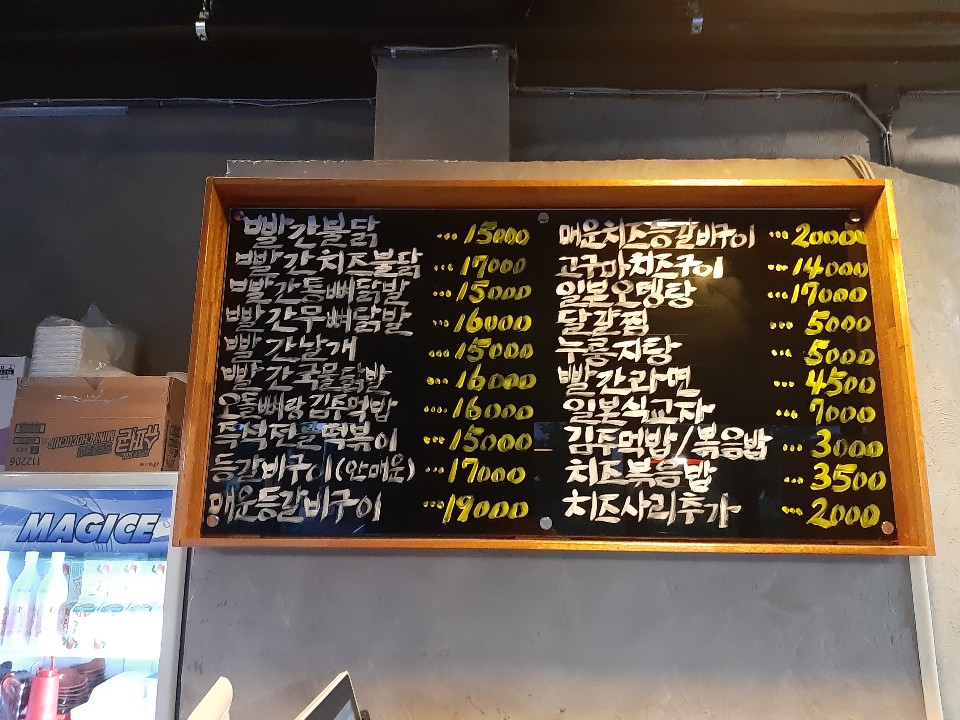 빨간불닭 ... 15000
빨간치즈불닭 ... 17000
빨간통뼈닭발 ... 15000
빨간무뼈닭발 ... 16000
빨간날개 ... 15000
빨간국물닭발 ... 16000
오돌뼈랑김주먹밥 .... 16000
즉석전골떡볶이 .... 15000
등갈비구이(안매운) ... 17000
매운등갈비구이 ... 19000
매운치즈등갈비구이 ... 20000
고구마치즈구이 ... 14000
일본오뎅탕 ... 17000
달걀찜 ... 5000
누룽지탕 ... 5000
빨간라면 ... 4500
일본식교자 ... 7000
김주먹밥/볶음밥 ... 3000
치즈볶음밥 ... 3500
치즈사리추가 ... 2000
슈퍼콘
MINT CHOCOCHIP
112206
MAGICE